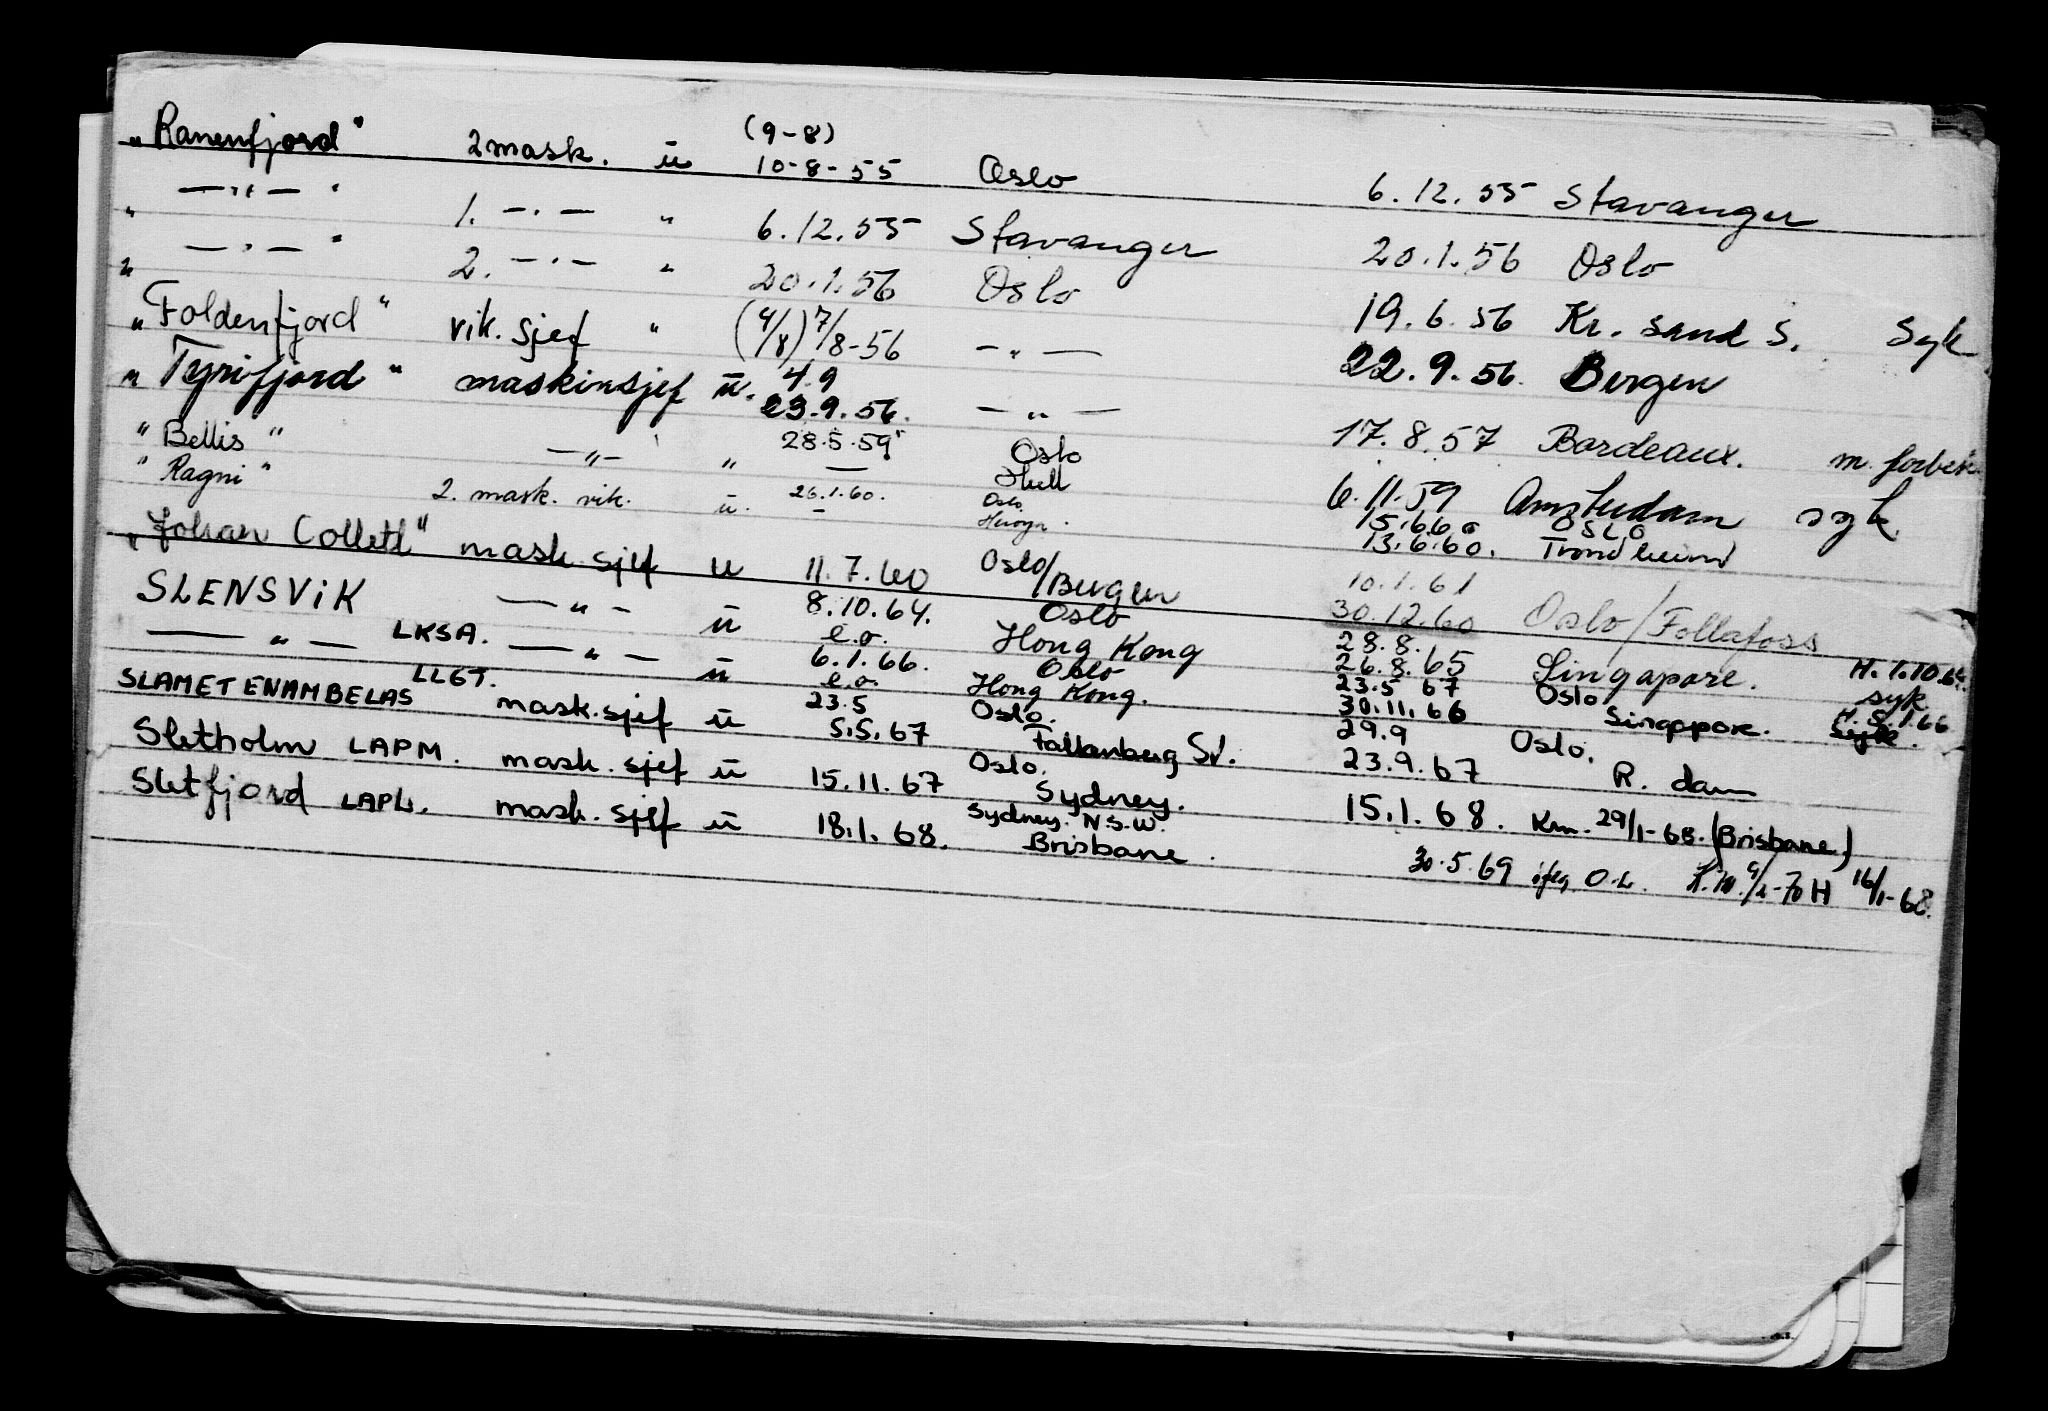 „Ranenfjord" 2 mask. ü (9-8) 10-8-55 Oslo 6.12.55 Stavanger
„ —„— " 1. —"— " 6.12.55 Stavanger 20.1.56 Oslo
„ —"— " 2. —"— " 20.1.56 Oslo 19.6.56 Kr. sand S. Syk
„Foldenfjord" vik. sjef " (4/8) 7/8-56 —„— 22.9.56 Bergen
„Tyrifjord" maskinsjef ü. 4.9 23.9.56. —„— 17.8.57 Bordeaux. m.
„Bellis" —„— „ 28.5.59 Oslo Hull 6.11.59 Amsterdam syk.
"Ragni" 2. mask. vik. ü. 26.1.60. — Oslo 15.6.60 OSLO 13.6.60. Trondheim
„Johan Collett" mask. sjef ü 11.7.60 Oslo/Bergen 10.1.61 30.12.60 Oslo/Follafoss
SLENSVIK —„— ü 8.10.64. e.o. Oslo Hong Kong 28.8. 26.8.65 Singapore. H. 1.10.64. syk
—„— LKSA. —„— ü 6.1.66. e.o. Oslo Hong Kong. 23.5 67 30.11.66 Oslo Singapore. H. 5.1.66
SLAMET ENAMBELAS LLGT. mask. sjef ü 23.5 5.5.67 Oslo. Falkenberg Sv. 29.9 23.9.67 Oslo. R. dam
Sletholm LAPM. mask. sjef ü 15.11.67 Oslo. Sydney. 15.1.68. Km. 29/1-68. (Brisbane)
Sletfjord LAPL. mask. sjef ü 18.1.68. Sydney. N.S.W. Brisbane. 30.5.69 O.L. H 16/1-68.